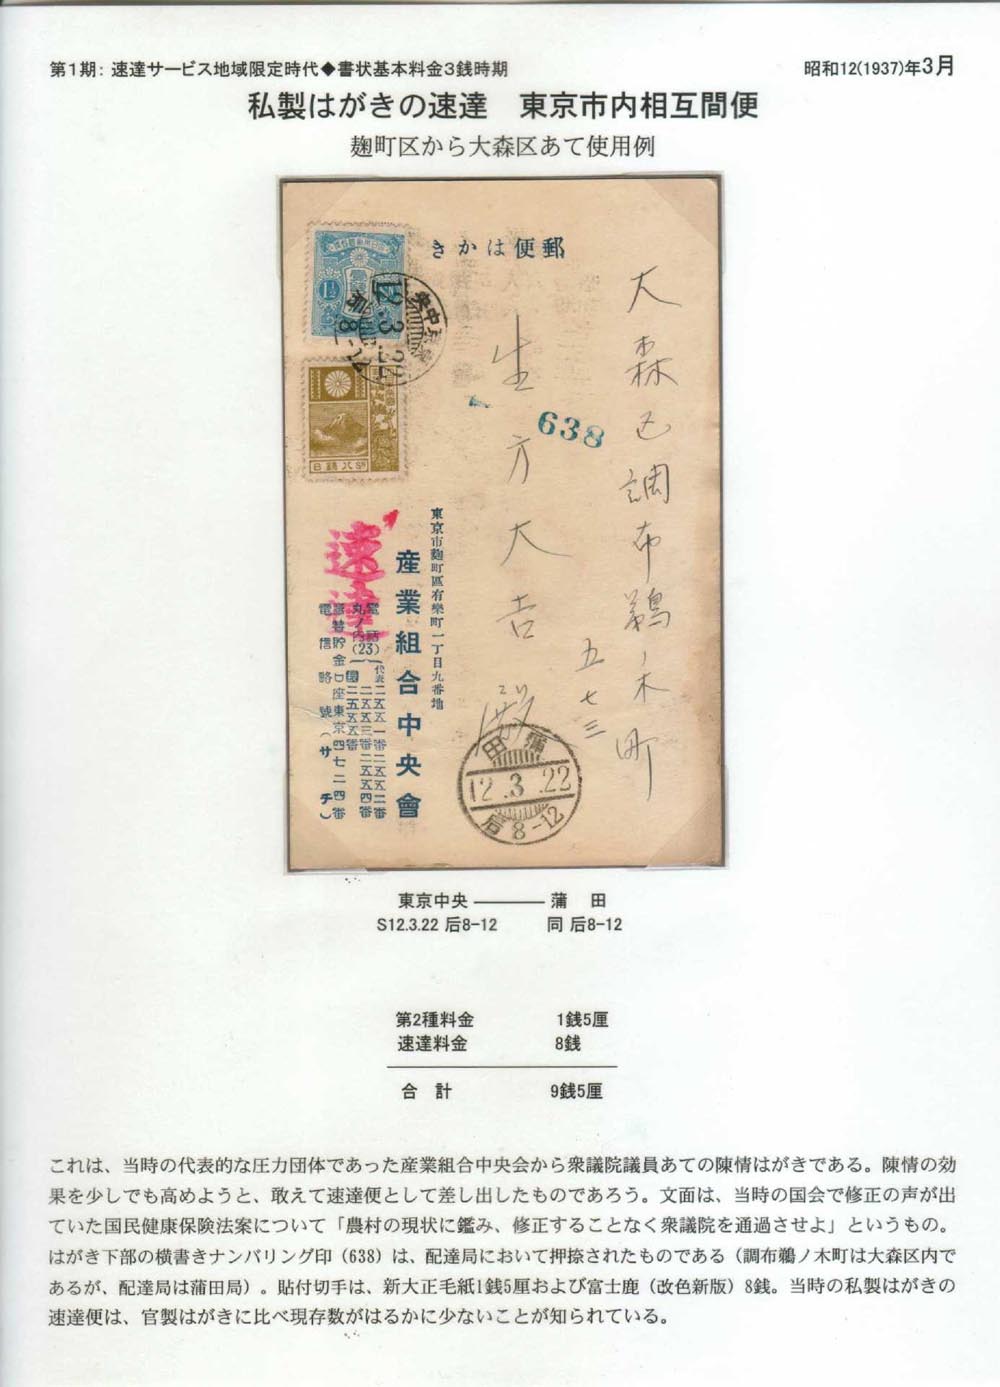 第1期: 速達サービス地域限定時代◆書状基本料金3銭時期
昭和12(1937)年3月
私製はがきの速達　東京市内相互間便
麹町区から大森区あて使用例
郵便はかき
大森区調布鵜ノ木町
五七三
生方大吉殿
638
1½
12.3.22
8-12
日本郵便
八銭
速達
東京市麴町區有樂町一丁目九番地
産業組合中央會
電話
丸ノ内(23)
代表
二五五一番
二五五二番
二五五三番
二五五四番
二五五五番
振替貯金口座東京四七二四番
電信略號(サチ)
蒲田
12.3.22
后8-12
東京中央 ——— 蒲　田
S12.3.22 后8-12　同 后8-12
第2種料金　1銭5厘
速達料金　8銭
合　計　9銭5厘
これは、当時の代表的な圧力団体であった産業組合中央会から衆議院議員あての陳情はがきである。陳情の効
果を少しでも高めようと、敢えて速達便として差し出したものであろう。文面は、当時の国会で修正の声が出
ていた国民健康保険法案について「農村の現状に鑑み、修正することなく衆議院を通過させよ」というもの。
はがき下部の横書きナンバリング印（638）は、配達局において押捺されたものである（調布鵜ノ木町は大森区内で
あるが、配達局は蒲田局）。貼付切手は、新大正毛紙1銭5厘および富士鹿（改色新版）8銭。当時の私製はがきの
速達便は、官製はがきに比べ現存数がはるかに少ないことが知られている。